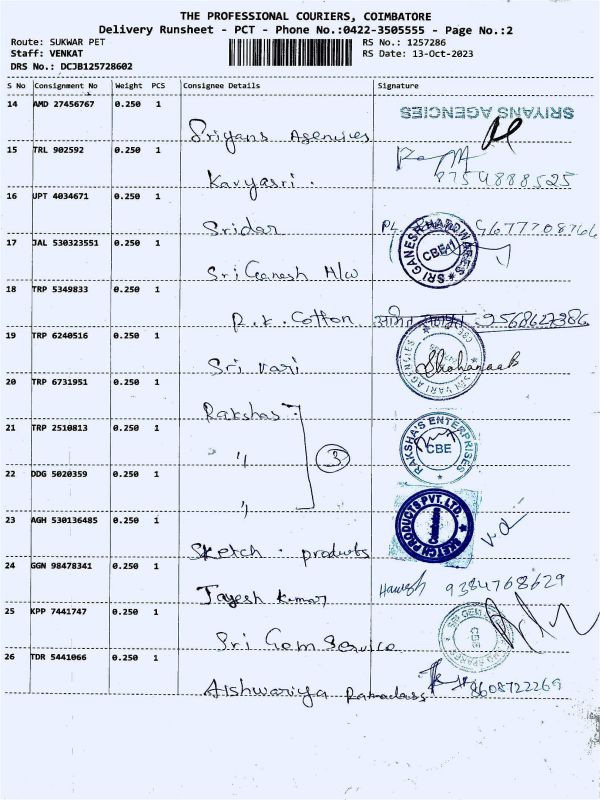 THE PROFESSIONAL COURIERS, COIMBATORE
Delivery Runsheet - PCT - Phone No.:0422-3505555 - Page No.:2
Route: SUKWAR PET
RS No.: 1257286
Staff: VENKAT
RS Date: 13-Oct-2023
DRS No.: DCJB125728602
S No Consignment No Weight PCS Consignee Details Signature
14 AMD 27456767 0.250 1
SRIYANS AGENCIES
Sriyans Agencies
15 TRL 902592 0.250 1
8754888525
Kavyasri.
16 UPT 4034671 0.250 1
Sridar
9677708766
17 JAL 530323551 0.250 1
SRI GANESH HARDWARES
CBE-1
Sri Ganesh H/w
18 TRP 5349833 0.250 1
R.K. Cotton
19 TRP 6240516 0.250 1
SRI VARI AGENCIES
Sri vari
20 TRP 6731951 0.250 1
Rakshas
21 TRP 2510813 0.250 1
RAKSHA'S ENTERPRISES
CBE
"
3
22 DDG 5020359 0.250 1
"
23 AGH 530136485 0.250 1
SKETCH PRODUCTS PVT. LTD.
Sketch . products
24 GGN 98478341 0.250 1
9384768629
Jayesh Kumar
25 KPP 7441747 0.250 1
SRI GEM
CBE
Sri Gem Service
26 TDR 5441066 0.250 1
8608722269
Aishwariya Ramadass